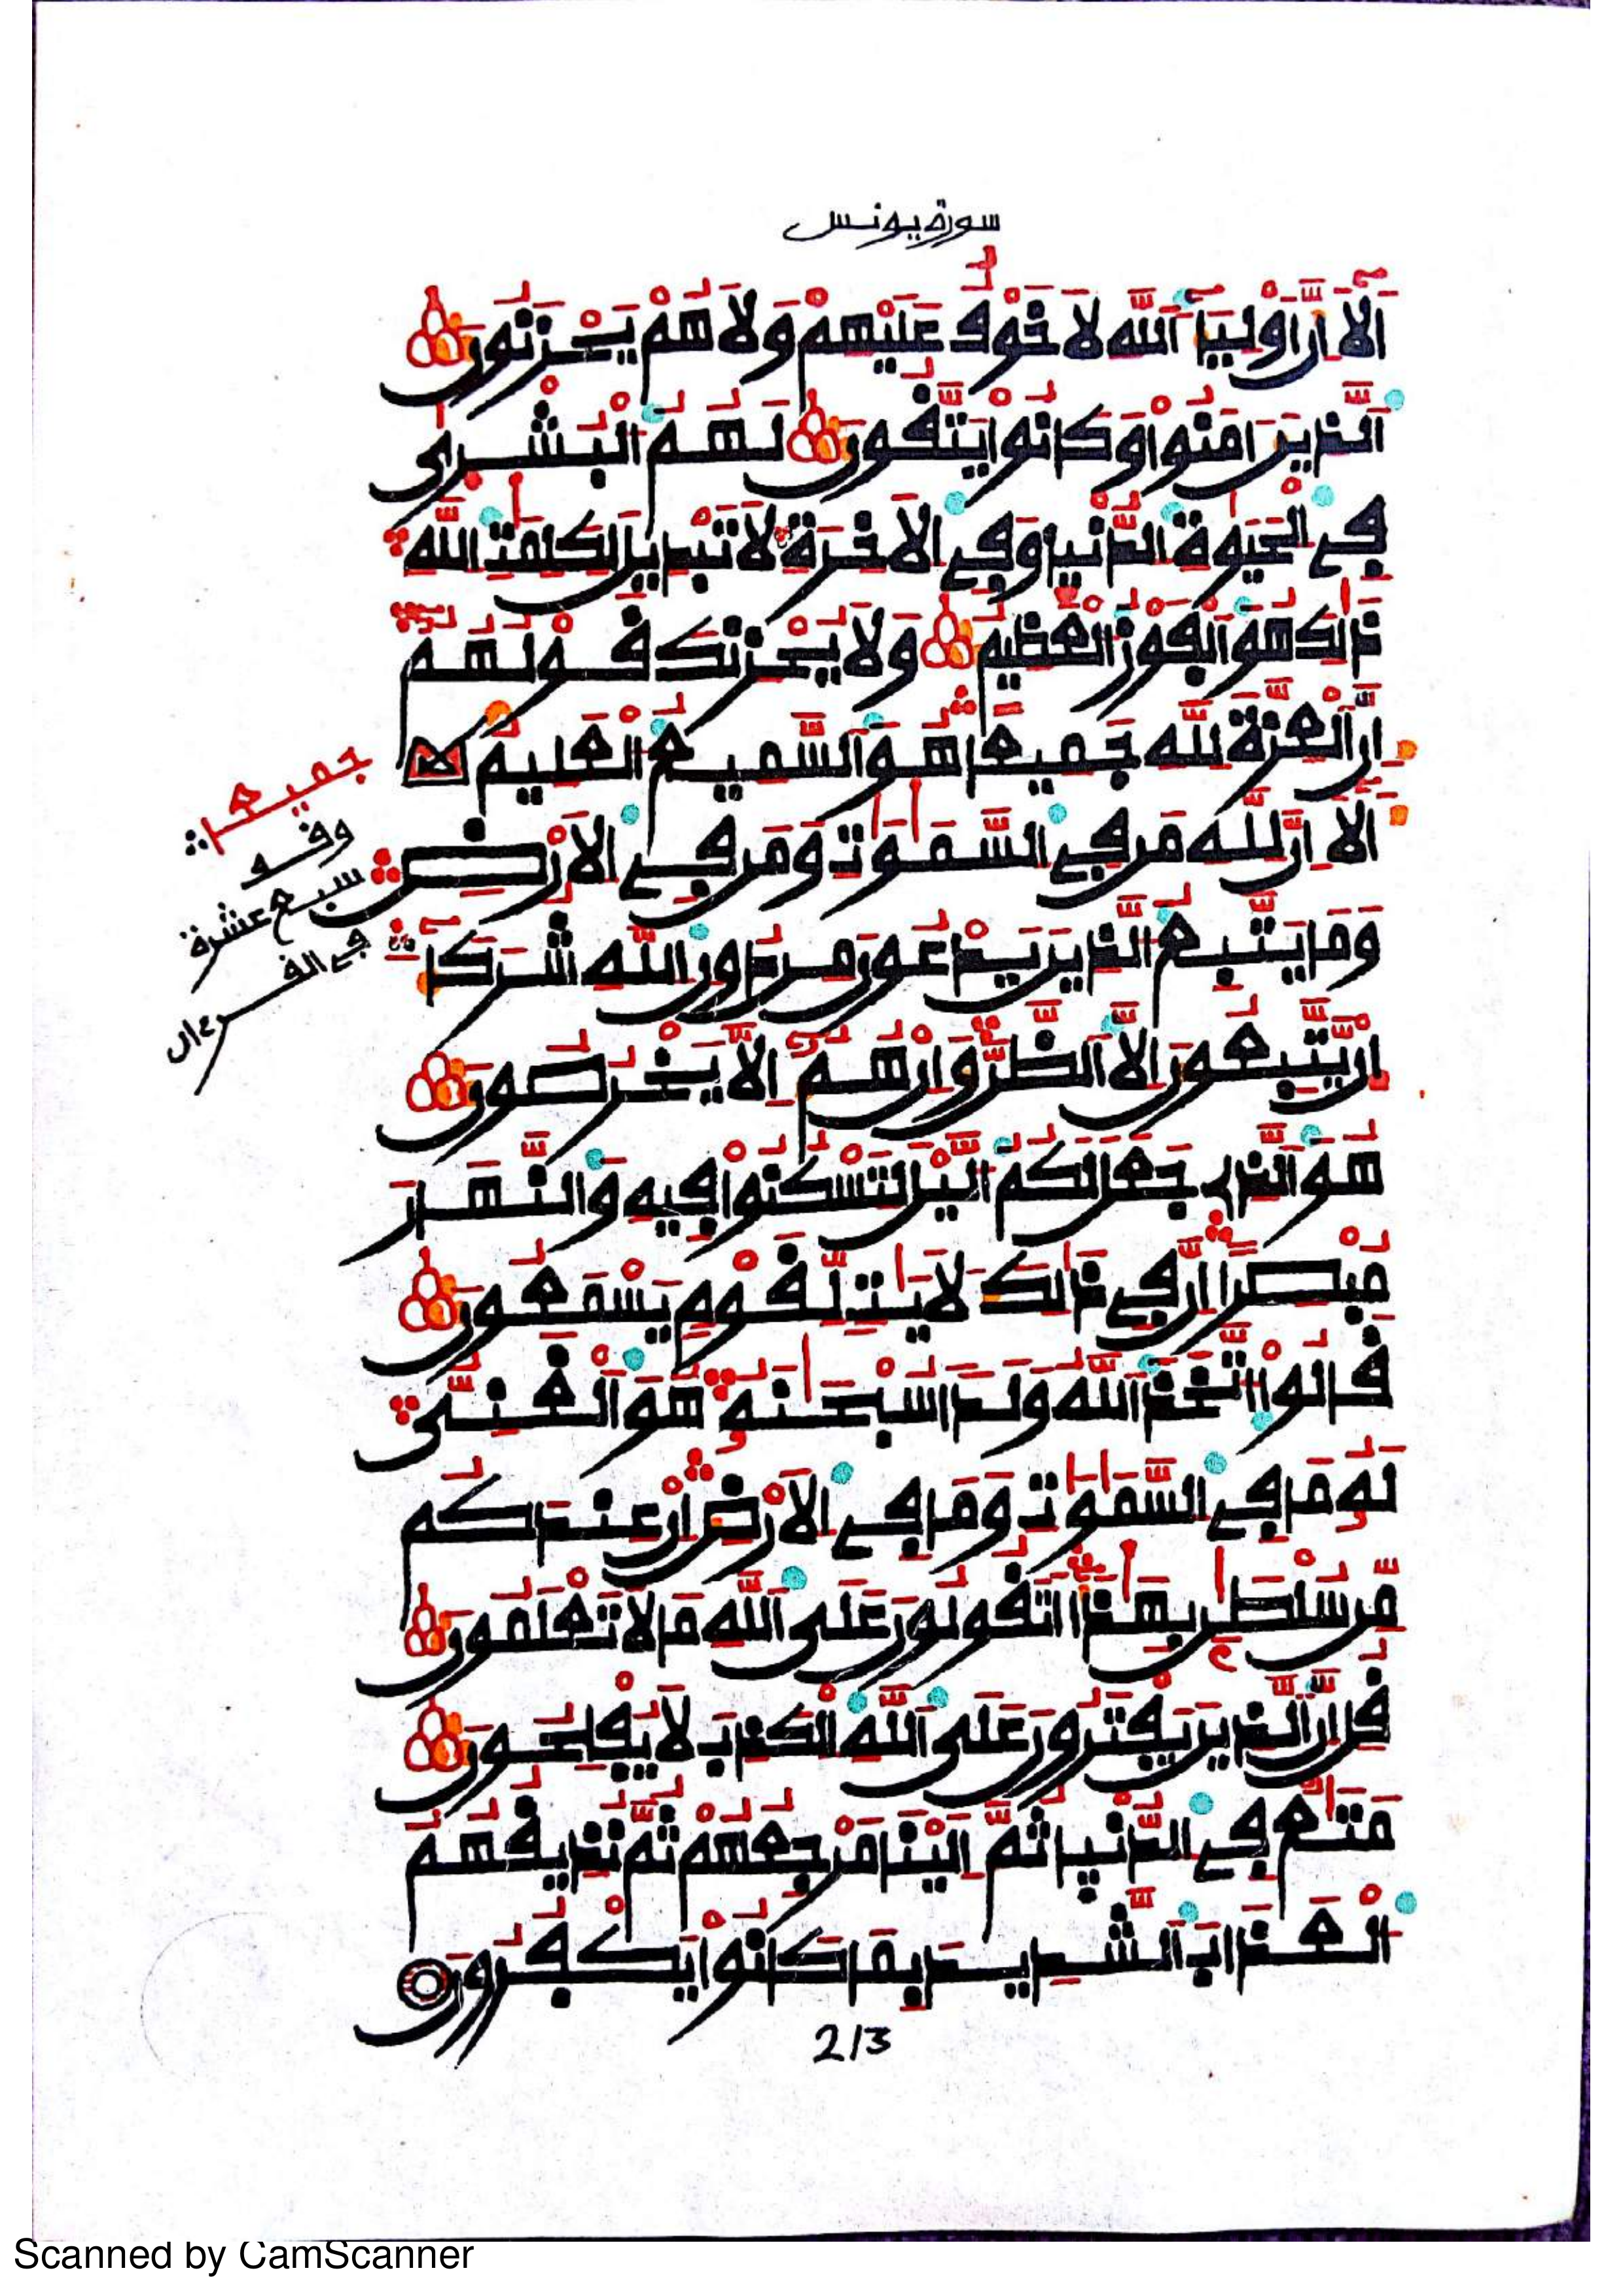 سورة يونس
أَلَآ إِنَّ أَوْلِيَآءَ ٱللَّهِ لَا خَوْفٌ عَلَيْهِمْ وَلَا هُمْ يَحْزَنُونَ
ٱلَّذِينَ ءَامَنُوا۟ وَكَانُوا۟ يَتَّقُونَ لَهُمُ ٱلْبُشْرَىٰ
فِي ٱلْحَيَوٰةِ ٱلدُّنْيَا وَفِي ٱلْأَخِرَةِ لَا تَبْدِيلَ لِكَلِمَٰتِ ٱللَّهِ
ذَٰلِكَ هُوَ ٱلْفَوْزُ ٱلْعَظِيمُ وَلَا يَحْزُنكَ قَوْلُهُمْ
إِنَّ ٱلْعِزَّةَ لِلَّهِ جَمِيعًا هُوَ ٱلسَّمِيعُ ٱلْعَلِيمُ
أَلَآ إِنَّ لِلَّهِ مَن فِي ٱلسَّمَٰوَٰتِ وَمَن فِي ٱلْأَرْضِ
وَمَا يَتَّبِعُ ٱلَّذِينَ يَدْعُونَ مِن دُونِ ٱللَّهِ شُرَكَآءَ
إِن يَتَّبِعُونَ إِلَّا ٱلظَّنَّ وَإِنْ هُمْ إِلَّا يَخْرُصُونَ
هُوَ ٱلَّذِي جَعَلَ لَكُمُ ٱلَّيْلَ لِتَسْكُنُوا۟ فِيهِ وَٱلنَّهَارَ
مُبْصِرًا إِنَّ فِي ذَٰلِكَ لَأَيَٰتٍ لِّقَوْمٍ يَسْمَعُونَ
قَالُوا۟ ٱتَّخَذَ ٱللَّهُ وَلَدًا سُبْحَٰنَهُۥ هُوَ ٱلْغَنِيُّ
لَهُۥ مَا فِي ٱلسَّمَٰوَٰتِ وَمَا فِي ٱلْأَرْضِ إِنْ عِندَكُم
مِّن سُلْطَٰنٍ بِهَٰذَا أَتَقُولُونَ عَلَى ٱللَّهِ مَا لَا تَعْلَمُونَ
قُلْ إِنَّ ٱلَّذِينَ يَفْتَرُونَ عَلَى ٱللَّهِ ٱلْكَذِبَ لَا يُفْلِحُونَ
مَتَٰعٌ فِي ٱلدُّنْيَا ثُمَّ إِلَيْنَا مَرْجِعُهُمْ ثُمَّ نُذِيقُهُمُ
ٱلْعَذَابَ ٱلشَّدِيدَ بِمَا كَانُوا۟ يَكْفُرُونَ
جميعا
وقف
سبع عشرة
في القرءان
213
Scanned by CamScanner